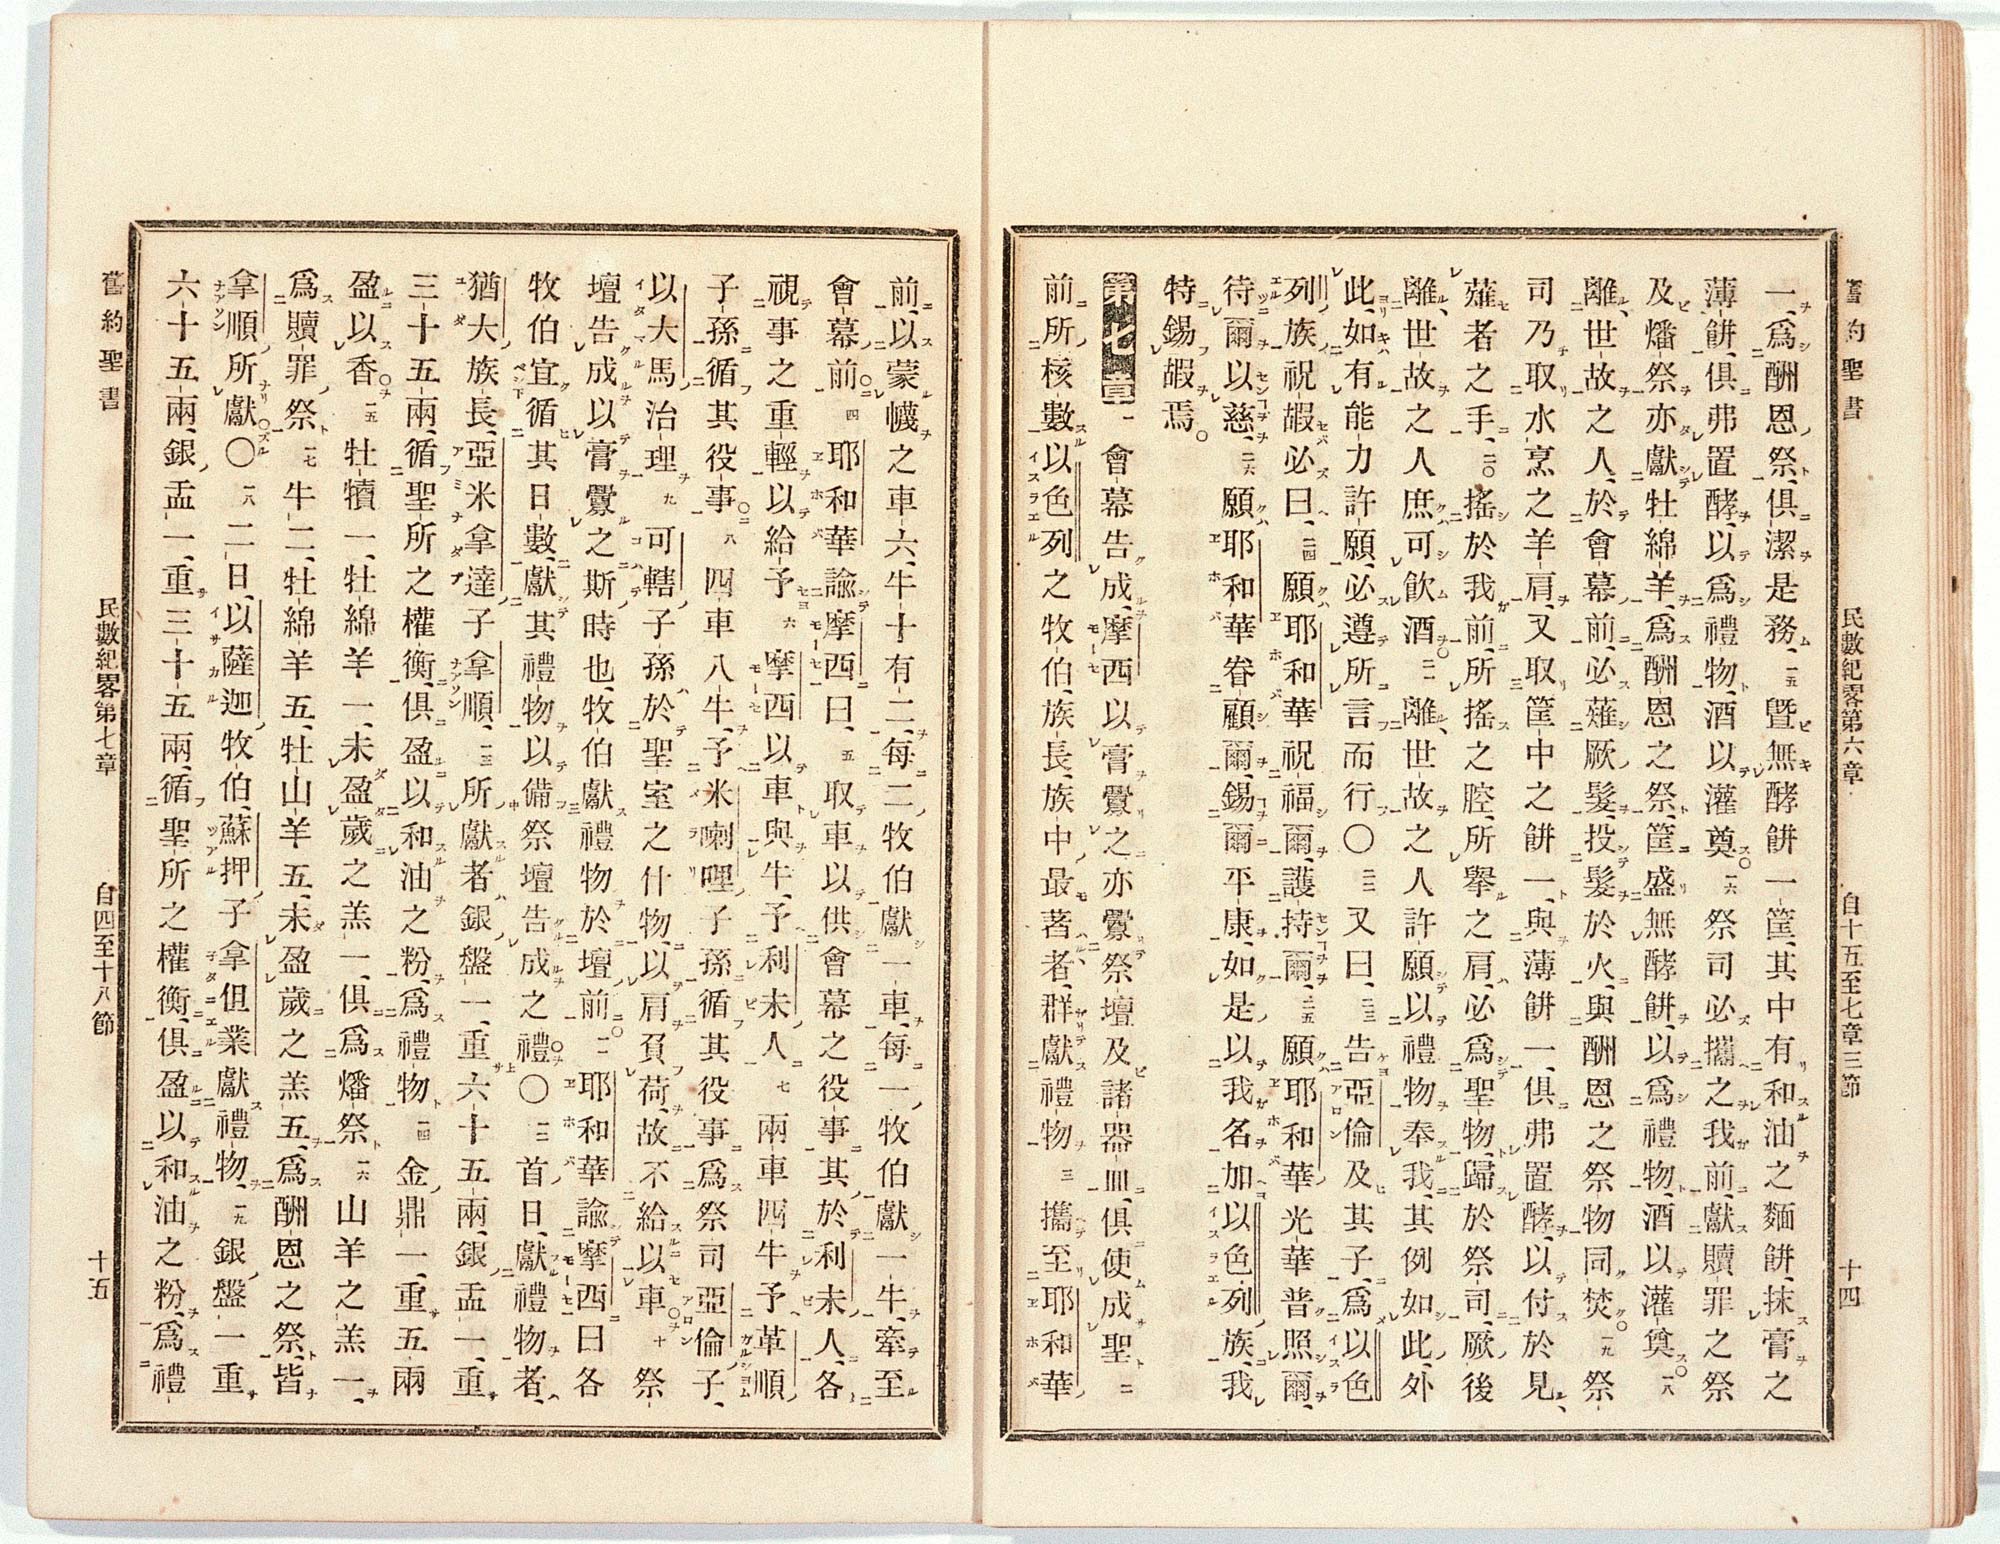 舊約聖書 民數紀畧第六章 自十五至七章三節 十四
一、爲酬恩祭、俱潔是務、一五曁無酵餅一筐、其中有和油之麵餅、抹膏之
薄餅、俱弗置酵、以爲禮物、酒以灌奠。一六祭司必攜之我前、獻贖罪之祭
及燔祭、亦獻牡綿羊、爲酬恩之祭、筐盛無酵餅、以爲禮物、酒以灌奠。一八
離世故之人、於會幕前、必薙厥髮、投髮於火、與酬恩之祭物同焚。一九祭
司乃取水烹之羊肩、又取筐中之餅一、與薄餅一、俱弗置酵、以付於見
薙者之手、二〇搖於我前、所搖之腔、所擧之肩、必爲聖物、歸於祭司、厥後
離世故之人庶可飮酒。二一離世故之人許願、以禮物奉我、其例如此、外
此、如有能力許願、必遵所言而行〇二二又曰、二三告亞倫及其子、爲以色
列族祝嘏必曰、二四願耶和華祝福爾、護持爾、二五願耶和華光華普照爾、
待爾以慈、二六願耶和華眷顧爾、錫爾平康、如是以我名加以色列族、我
特錫嘏焉。
第七章 一會幕告成、摩西以膏釁之、亦釁祭壇及諸器皿、俱使成聖、二
前所核數以色列之牧伯、族長、族中最著者、群獻禮物、三攜至耶和華
前、以蒙幭之車六、牛十有二、每二牧伯獻一車、每一牧伯獻一牛、牽至
會幕前。四耶和華諭摩西曰、五取車以供會幕之役事、其於利未人、各
視事之重輕以給予、六摩西以車與牛、予利未人、七兩車四牛予革順
子孫、循其役事。八四車八牛、予米喇哩子孫、循其役事、爲祭司亞倫子、
以大馬治理、九可轄子孫、於聖室之什物、以肩負荷、故不給以車。十祭
壇告成、以膏釁之、斯時也、牧伯獻禮物於壇前。一一耶和華諭摩西曰、各
牧伯宜循其日數、獻其禮物、以備祭壇告成之禮。〇一二首日、獻禮物者、
猶大族長、亞米拿達子拿順、一三所獻者、銀盤一、重六十五兩、銀盂一、重
三十五兩、循聖所之權衡、俱盈以和油之粉、爲禮物、一四金鼎一、重五兩
盈以香。一五牡犢一、牡綿羊一、未盈歲之羔一、俱爲燔祭、一六山羊之羔一、
爲贖罪祭、一七牛二、牡綿羊五、牡山羊五、未盈歲之羔五、爲酬恩之祭、皆
拿順所獻。〇一八二日、以薩迦牧伯、蘇押子拿但業獻禮物、一九銀盤一重
六十五兩、銀盂一、重三十五兩、循聖所之權衡、俱盈以和油之粉、爲禮
舊約聖書 民數紀畧第七章 自四至十八節 十五